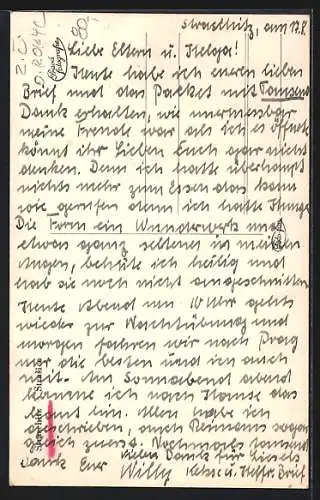 Straschitz, am 17.8.
Liebe Eltern u. Helga!
Heute habe ich eueren lieben
Brief und das Packet mit Tausend
Dank erhalten, wie unermessbar
meine Freude war als ich es öffnete
könnt ihr Lieben Euch gar nicht
denken. Denn ich hatte überhaupt
nichts mehr zum Essen das kam
wie gerufen denn ich hatte Hunger
Die Form ein Wunderwerk und
etwas ganz seltenes in meinen
Augen, behüte ich heilig und
hab sie noch nicht angeschnitten
Heute Abend um 10 Uhr gehts
wieder zur Nachtübung und
morgen fahren wir nach Prag
nur die besten und ich auch
mit. Am Sonnabend abend
komme ich nach Hause das
kommt hin. Allen habe ich
geschrieben, auch Reimanns sogar
gleich zuerst. Nochmals tausend
Dank Euer Willy
vielen Dank für Liesels
Brief